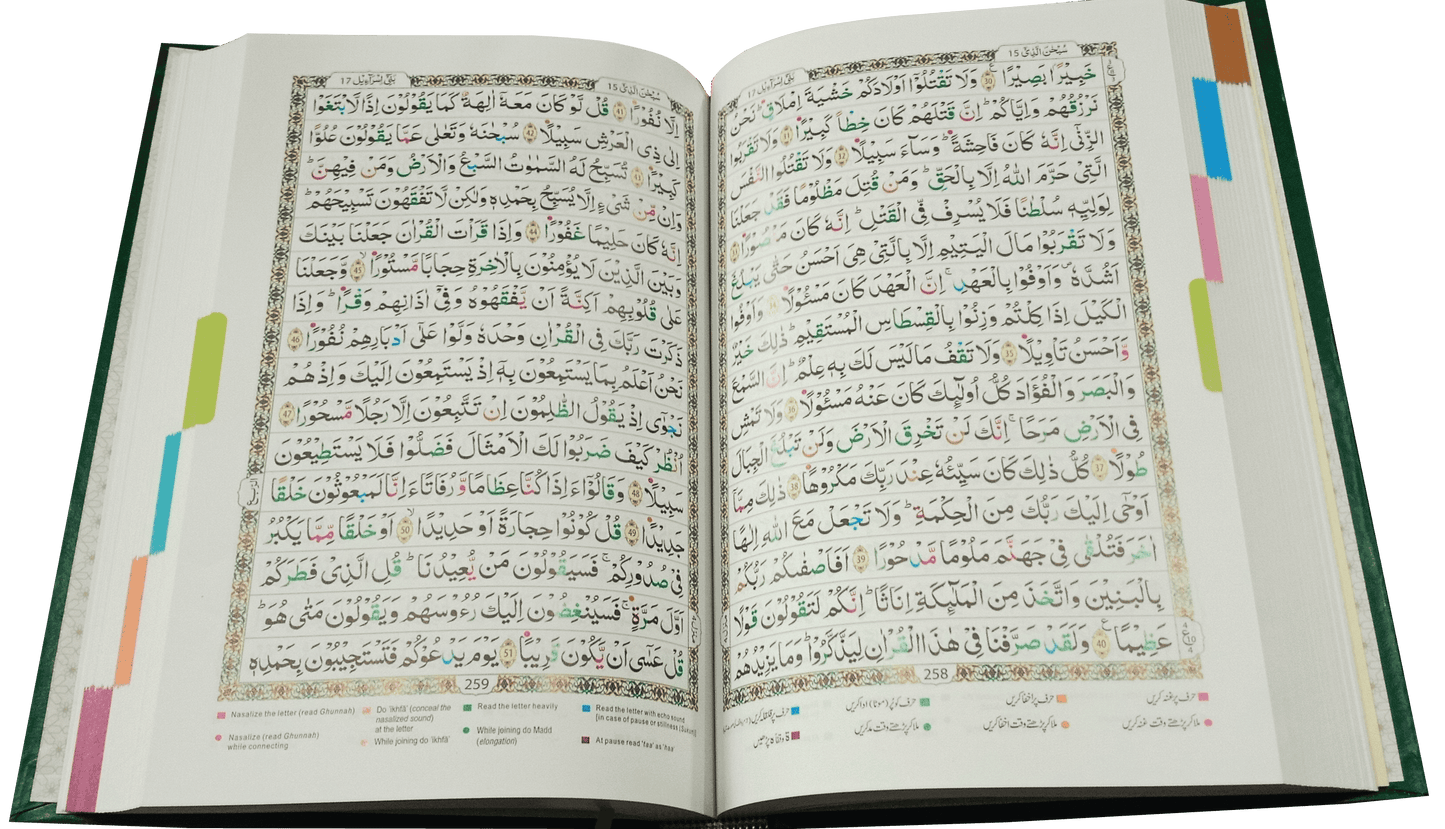 سُبْحٰنَ الَّذِیْۤ 15
بَنِیْۤ اِسْرَآءِیْل 17
خَبِیْرًۢا بَصِیْرًا 30 وَلَا تَقْتُلُوْۤا اَوْلَادَكُمْ خَشْیَةَ اِمْلَاقٍ ؕ نَحْنُ
نَرْزُقُهُمْ وَاِیَّاكُمْ ؕ اِنَّ قَتْلَهُمْ كَانَ خِطْاً كَبِیْرًا 31 وَلَا تَقْرَبُوا
الزِّنٰۤی اِنَّهٗ كَانَ فَاحِشَةً ؕ وَسَآءَ سَبِیْلًا 32 وَلَا تَقْتُلُوا النَّفْسَ
الَّتِیْ حَرَّمَ اللّٰهُ اِلَّا بِالْحَقِّ ؕ وَمَنْ قُتِلَ مَظْلُوْمًا فَقَدْ جَعَلْنَا
لِوَلِیِّهٖ سُلْطٰنًا فَلَا یُسْرِفْ فِّی الْقَتْلِ ؕ اِنَّهٗ كَانَ مَنْصُوْرًا 33
وَلَا تَقْرَبُوْا مَالَ الْیَتِیْمِ اِلَّا بِالَّتِیْ هِیَ اَحْسَنُ حَتّٰی یَبْلُغَ
اَشُدَّهٗ ۪ وَاَوْفُوْا بِالْعَهْدِ ۚ اِنَّ الْعَهْدَ كَانَ مَسْـُٔوْلًا 34 وَاَوْفُوا
الْكَیْلَ اِذَا كِلْتُمْ وَزِنُوْا بِالْقِسْطَاسِ الْمُسْتَقِیْمِ ؕ ذٰلِكَ خَیْرٌ
وَّاَحْسَنُ تَاْوِیْلًا 35 وَلَا تَقْفُ مَا لَیْسَ لَكَ بِهٖ عِلْمٌ ؕ اِنَّ السَّمْعَ
وَالْبَصَرَ وَالْفُؤَادَ كُلُّ اُولٰٓئِكَ كَانَ عَنْهُ مَسْـُٔوْلًا 36 وَلَا تَمْشِ
فِی الْاَرْضِ مَرَحًا ۚ اِنَّكَ لَنْ تَخْرِقَ الْاَرْضَ وَلَنْ تَبْلُغَ الْجِبَالَ
طُوْلًا 37 كُلُّ ذٰلِكَ كَانَ سَیِّئُهٗ عِنْدَ رَبِّكَ مَكْرُوْهًا 38 ذٰلِكَ مِمَّاۤ
اَوْحٰۤی اِلَیْكَ رَبُّكَ مِنَ الْحِكْمَةِ ؕ وَلَا تَجْعَلْ مَعَ اللّٰهِ اِلٰهًا
اٰخَرَ فَتُلْقٰی فِیْ جَهَنَّمَ مَلُوْمًا مَّدْحُوْرًا 39 اَفَاَصْفٰىكُمْ رَبُّكُمْ
بِالْبَنِیْنَ وَاتَّخَذَ مِنَ الْمَلٰٓئِكَةِ اِنَاثًا ؕ اِنَّكُمْ لَتَقُوْلُوْنَ قَوْلًا
عَظِیْمًا 40 وَلَقَدْ صَرَّفْنَا فِیْ هٰذَا الْقُرْاٰنِ لِیَذَّكَّرُوْا وَمَا یَزِیْدُهُمْ
258
حرف پر غنہ کریں
حرف پر اخفا کریں
حرف کو پُر (موٹا) ادا کریں
حرف پر قلقلہ کریں
ملا کر پڑھتے وقت غنہ کریں
ملا کر پڑھتے وقت اخفا کریں
ملا کر پڑھتے وقت مد کریں
سُبْحٰنَ الَّذِیْۤ 15
بَنِیْۤ اِسْرَآءِیْل 17
اِلَّا نُفُوْرًا 41 قُلْ لَّوْ كَانَ مَعَهٗۤ اٰلِهَةٌ كَمَا یَقُوْلُوْنَ اِذًا لَّابْتَغَوْا
اِلٰی ذِی الْعَرْشِ سَبِیْلًا 42 سُبْحٰنَهٗ وَتَعٰلٰی عَمَّا یَقُوْلُوْنَ عُلُوًّا
كَبِیْرًا 43 تُسَبِّحُ لَهُ السَّمٰوٰتُ السَّبْعُ وَالْاَرْضُ وَمَنْ فِیْهِنَّ ؕ
وَاِنْ مِّنْ شَیْءٍ اِلَّا یُسَبِّحُ بِحَمْدِهٖ وَلٰكِنْ لَّا تَفْقَهُوْنَ تَسْبِیْحَهُمْ ؕ
اِنَّهٗ كَانَ حَلِیْمًا غَفُوْرًا 44 وَاِذَا قَرَاْتَ الْقُرْاٰنَ جَعَلْنَا بَیْنَكَ
وَبَیْنَ الَّذِیْنَ لَا یُؤْمِنُوْنَ بِالْاٰخِرَةِ حِجَابًا مَّسْتُوْرًا 45 وَّجَعَلْنَا
عَلٰی قُلُوْبِهِمْ اَكِنَّةً اَنْ یَّفْقَهُوْهُ وَفِیْۤ اٰذَانِهِمْ وَقْرًا ؕ وَاِذَا
ذَكَرْتَ رَبَّكَ فِی الْقُرْاٰنِ وَحْدَهٗ وَلَّوْا عَلٰۤی اَدْبَارِهِمْ نُفُوْرًا 46
نَحْنُ اَعْلَمُ بِمَا یَسْتَمِعُوْنَ بِهٖۤ اِذْ یَسْتَمِعُوْنَ اِلَیْكَ وَاِذْ هُمْ
نَجْوٰۤی اِذْ یَقُوْلُ الظّٰلِمُوْنَ اِنْ تَتَّبِعُوْنَ اِلَّا رَجُلًا مَّسْحُوْرًا 47
اُنْظُرْ كَیْفَ ضَرَبُوْا لَكَ الْاَمْثَالَ فَضَلُّوْا فَلَا یَسْتَطِیْعُوْنَ
سَبِیْلًا 48 وَقَالُوْۤا ءَاِذَا كُنَّا عِظَامًا وَّرُفَاتًا ءَاِنَّا لَمَبْعُوْثُوْنَ خَلْقًا
جَدِیْدًا 49 قُلْ كُوْنُوْا حِجَارَةً اَوْ حَدِیْدًا 50 اَوْ خَلْقًا مِّمَّا یَكْبُرُ
فِیْ صُدُوْرِكُمْ ۚ فَسَیَقُوْلُوْنَ مَنْ یُّعِیْدُنَا ؕ قُلِ الَّذِیْ فَطَرَكُمْ
اَوَّلَ مَرَّةٍ ۚ فَسَیُنْغِضُوْنَ اِلَیْكَ رُءُوْسَهُمْ وَیَقُوْلُوْنَ مَتٰی هُوَ ؕ
قُلْ عَسٰۤی اَنْ یَّكُوْنَ قَرِیْبًا 51 یَوْمَ یَدْعُوْكُمْ فَتَسْتَجِیْبُوْنَ بِحَمْدِهٖ
259
Nasalize the letter (read Ghunnah)
Do 'ikhfā' (conceal the nasalized sound) at the letter
Read the letter heavily
Read the letter with echo sound (in case of pause or stillness [Sukun])
Nasalize (read Ghunnah) while connecting
While joining do 'ikhfā'
While joining do Madd (elongation)
At pause read 'taa' as 'haa'